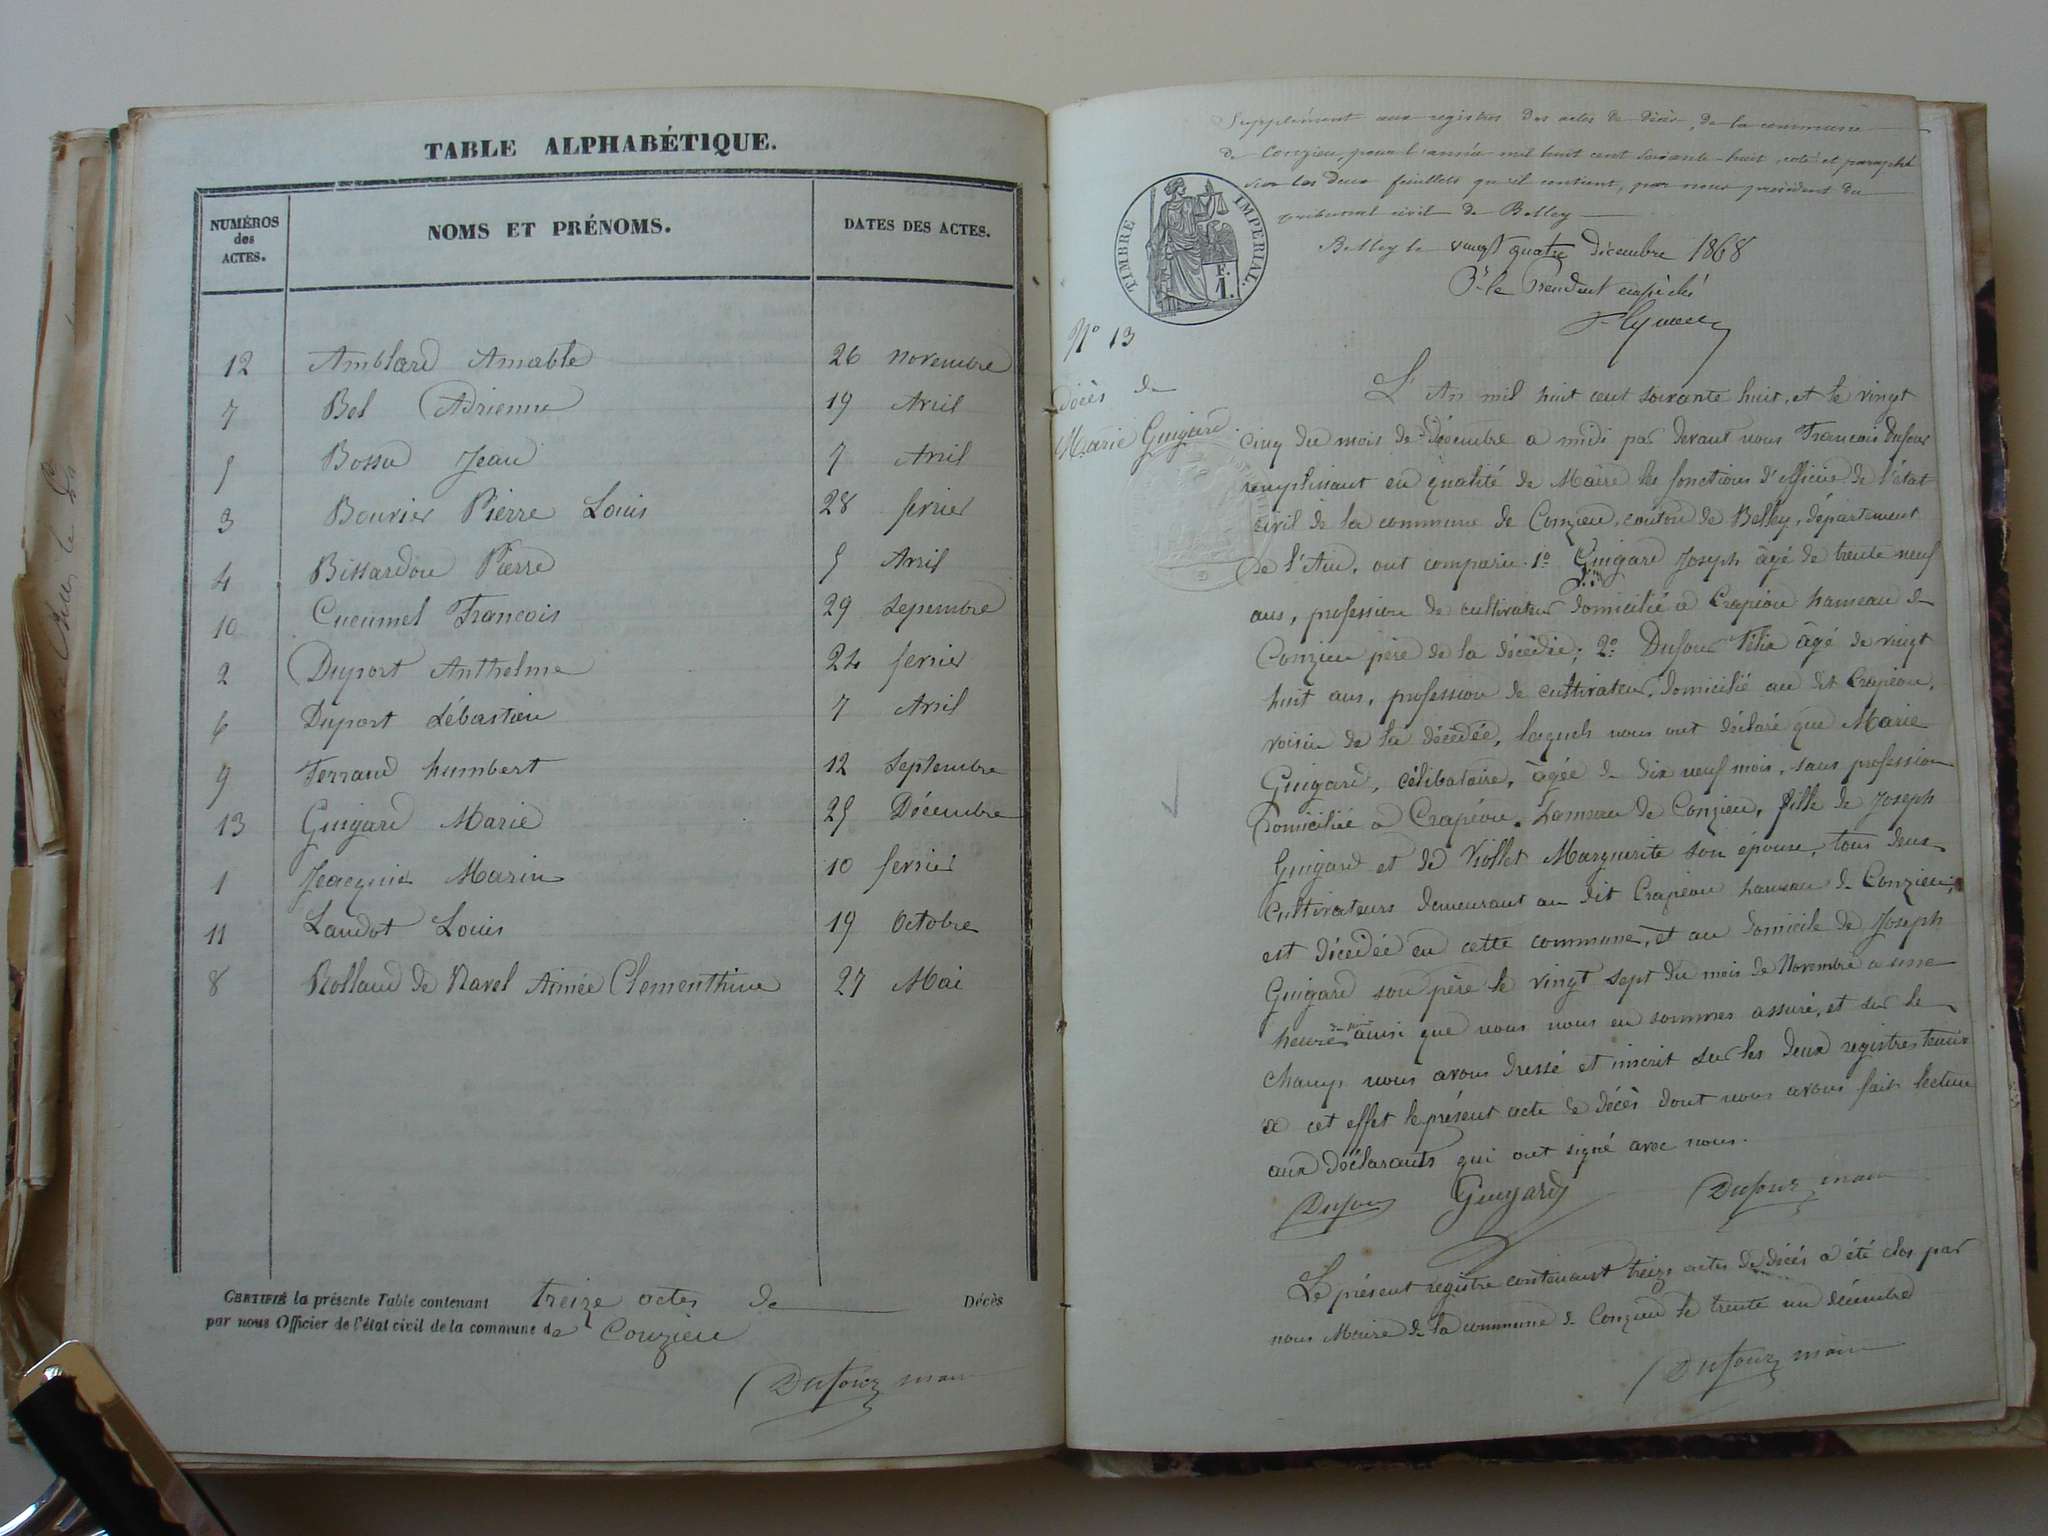 TABLE ALPHABÉTIQUE.
NUMÉROS des ACTES.
NOMS ET PRÉNOMS.
DATES DES ACTES.
12 Amblard Amable 26 novembre
7 Bel Adrienne 19 Avril
5 Bossu Jean 7 Avril
3 Bouvier Pierre Louis 28 fevrier
4 Bissardon Pierre 5 Avril
10 Cueumel François 29 Sepembre
2 Duport Anthelme 24 fevrier
6 Duport Sébastien 7 Avril
9 Ferrand humbert 12 Septembre
13 Guigard Marie 25 Décembre
1 Marin 10 fevrier
11 Landot Louis 19 Octobre
8 Rolland de Ravel Aimée Clementhine 27 Mai
CERTIFIÉ la présente Table contenant treize actes de Décès
par nous Officier de l'état civil de la commune de Conzieu
Dufour maire
Supplément aux registres des actes de décès, de la commune
de Conzieu, pour l'année mil huit cent soixante-huit, coté et paraphé
sur les deux feuillets qu'il contient, par nous président du
tribunal civil de Belley
Belley le vingt quatre décembre 1868
Pr le Président empêché
TIMBRE IMPERIAL.
F. 1.
No 13
décès de
Marie Guigard.
L'An mil huit cent soixante huit, et le vingt
cinq du mois de décembre a midi par devant nous François Dufour
remplissant en qualité de Maire les fonctions d'officier de l'état
civil de la commune de Conzieu, canton de Belley, département
de l'Ain, ont comparu 1o Guigard Joseph âgé de trente neuf
ans, profession de cultivateur domicilié a Crapéou hameau de
Conzieu père de la décédée; 2o Dufour Félix âgé de vingt
huit ans, profession de cultivateur, domicilié au dit Crapéou,
voisin de la décédée, lesquels nous ont déclaré que Marie
Guigard, célibataire, âgée de dix neuf mois, sans profession
Domiciliée a Crapéou hameau de Conzieu, fille de Joseph
Guigard et de Viollet Marguerite son épouse, tous deux
Cultivateurs demeurant au dit Crapéou hameau de Conzieu,
est décédée en cette commune, et au domicile de Joseph
Guigard son père le vingt sept du mois de Novembre a une
heure du soir ainsi que nous nous en sommes assuré, et sur le
champ nous avons dressé et inscrit sur les deux registres tenus
a cet effet le présent acte de décès dont nous avons fait lecture
aux déclarants qui ont signé avec nous.
Dufour Guigard Dufour maire
Le présent registre contenant treize actes de décès a été clos par
nous Maire de la commune de Conzieu le trente un décembre
Dufour maire